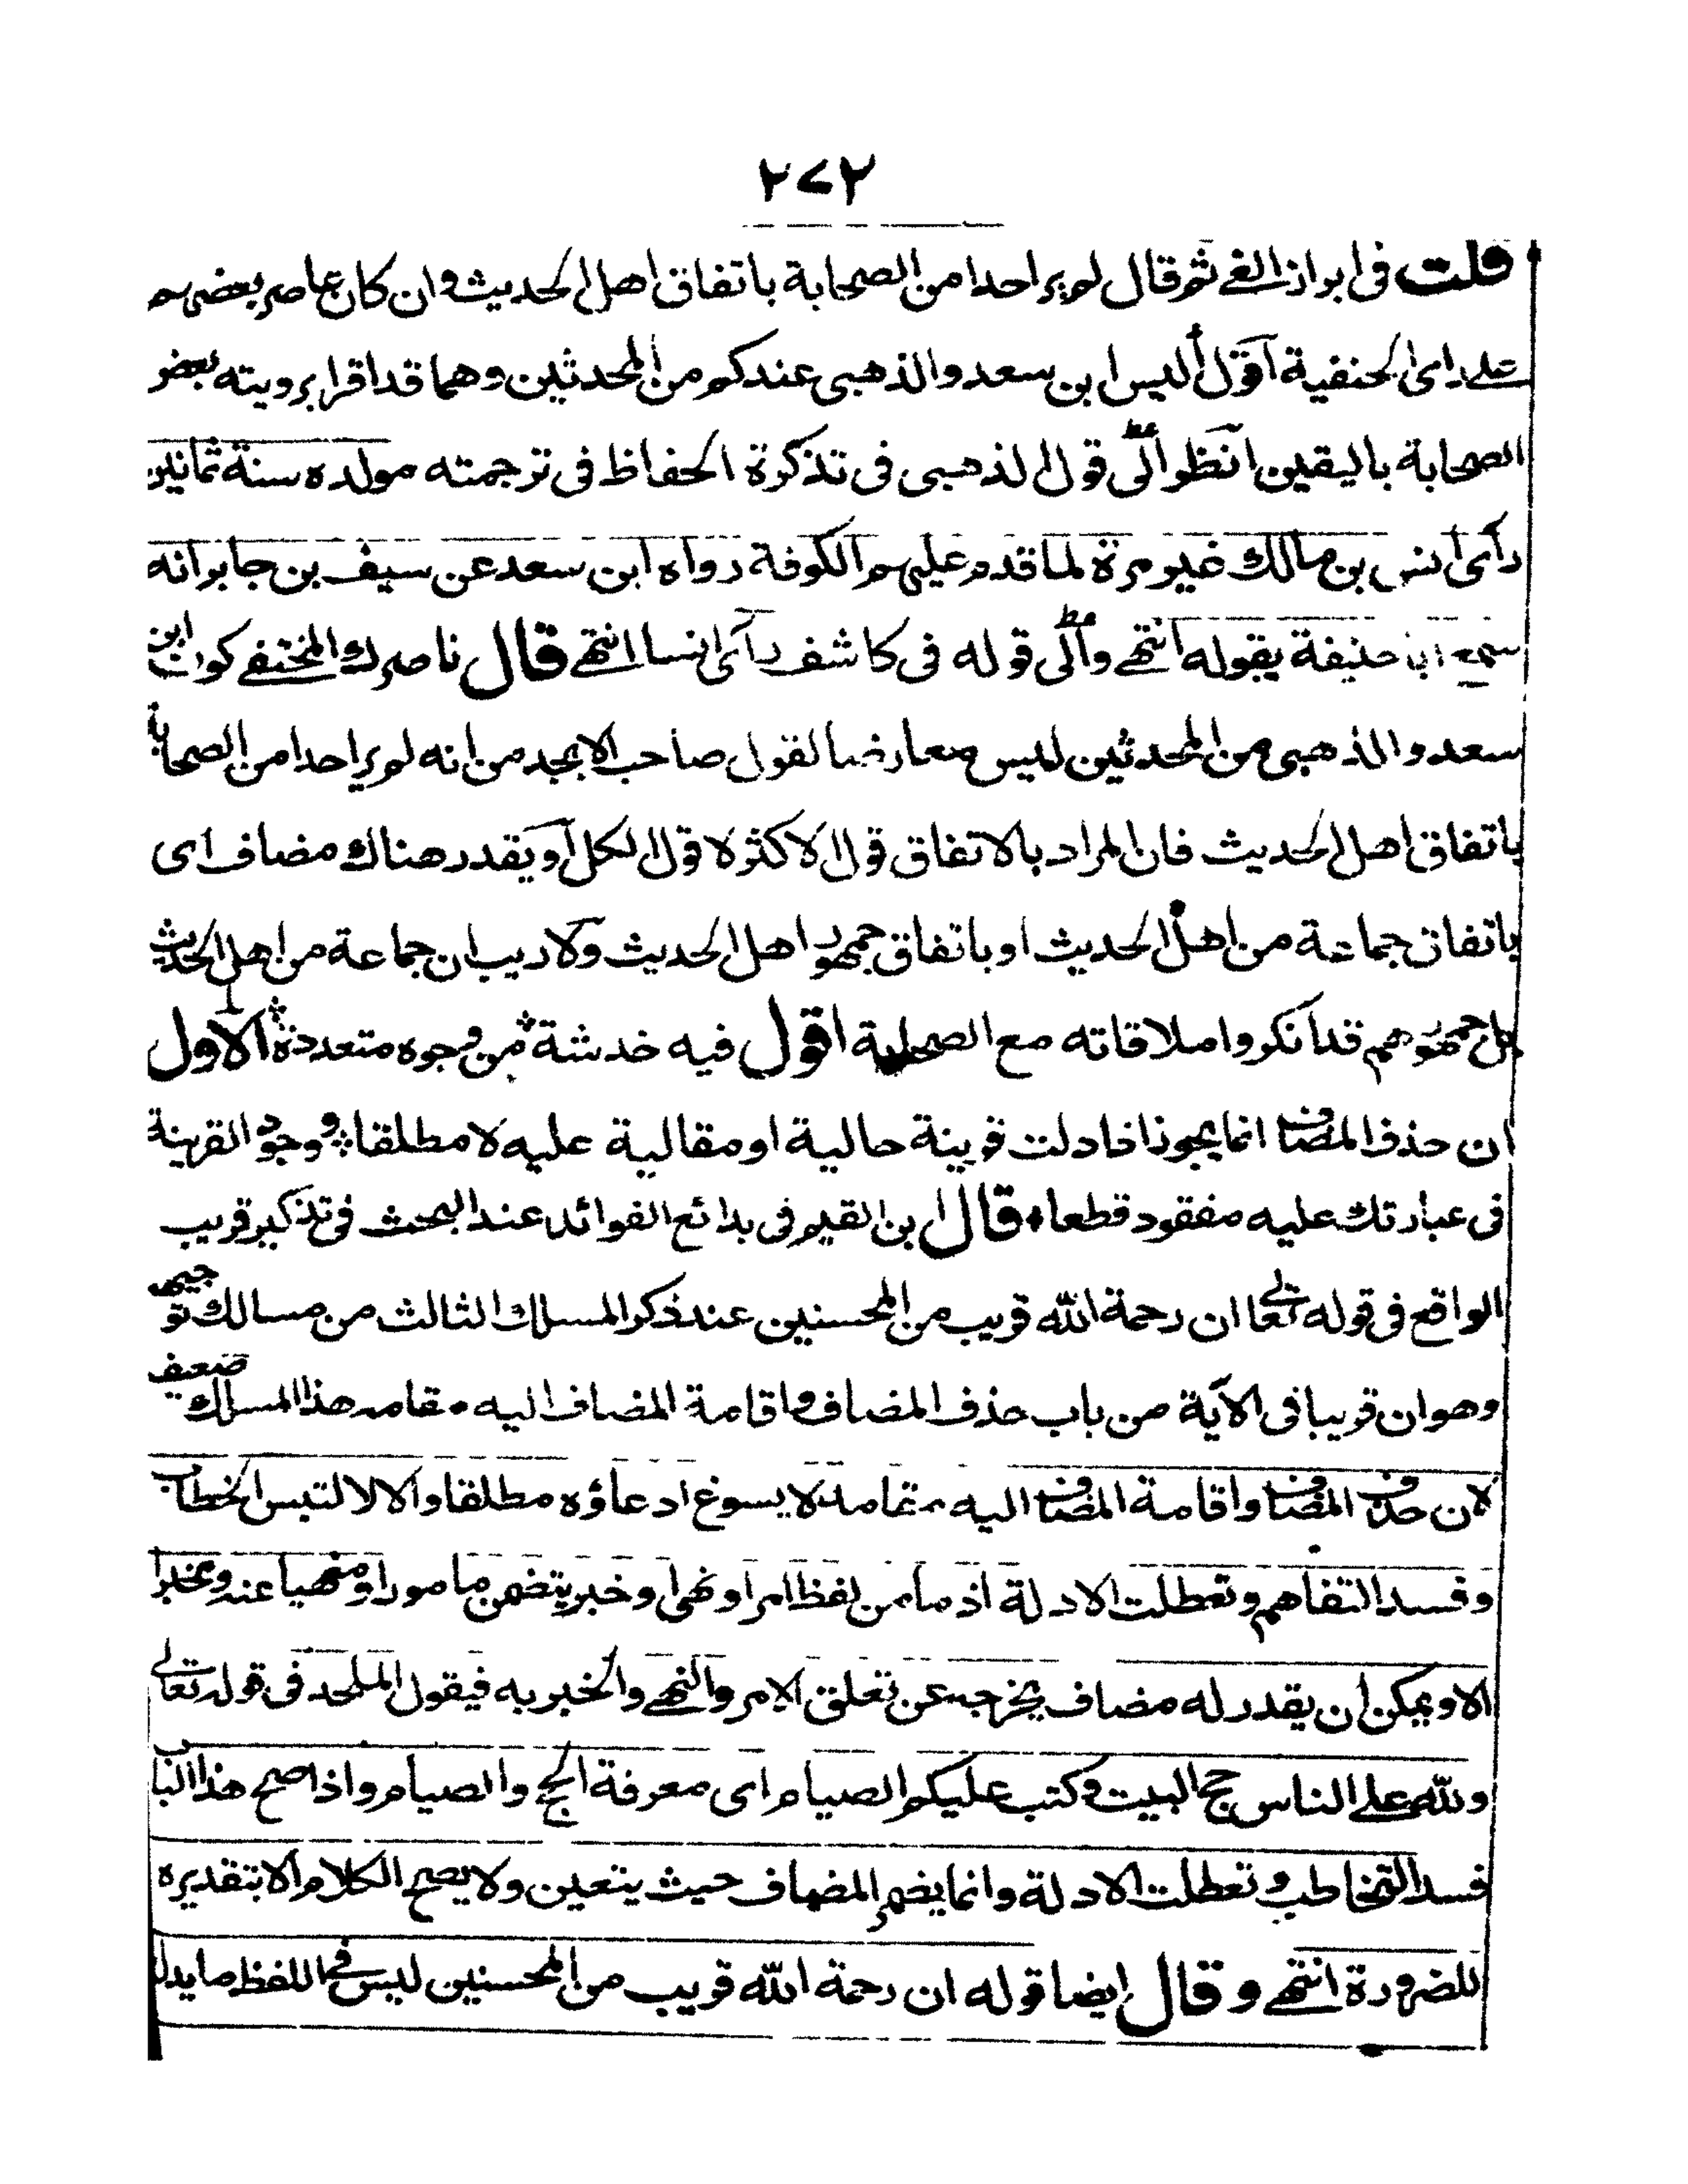 ٢٧٢
قلت فى ابراز الغى ثم قال لم ير احدا من الصحابة باتفاق اهل الحديث وان كان عاصر بعضهم
على راى الحنفية اقول اليس ابن سعد والذهبى عندكم من المحدثين وهما قد اقرا برويته بعض
الصحابة باليقين انظر الى قول الذهبى فى تذكرة الحفاظ فى ترجمته مولده سنة ثمانين
رأى انس بن مالك غير مرة لما قدم عليهم الكوفة رواه ابن سعد عن سيف بن جابر انه
سمع ابا حنيفة يقوله انتهى والى قوله فى كاشف رأى انسا انتهى قال ناصرك المختفى كون ابن
سعد والذهبى من المحدثين ليس معارضا لقول صاحب الابجد من انه لم ير احدا من الصحابة
باتفاق اهل الحديث فان المراد بالاتفاق قول الاكثر لا قول الكل او يقدر هناك مضاف اى
باتفاق جماعة من اهل الحديث او باتفاق جمهور اهل الحديث ولا ريب ان جماعة من اهل الحديث
بل جمهورهم قد انكروا ملاقاته مع الصحابة اقول فيه خدشة من وجوه متعددة الاول
ان حذف المضاف انما يجوز اذا دلت قرينة حالية او مقالية عليه لا مطلقا ووجود القرينة
فى عبارتك عليه مفقود قطعا قال ابن القيم فى بدائع الفوائد عند البحث فى تذكير قريب
الواقع فى قوله تعالى ان رحمة الله قريب من المحسنين عند ذكر المسلك الثالث من مسالك توجيهه
وهو ان قريبا فى الآية من باب حذف المضاف واقامة المضاف اليه مقامه هذا المسلك ضعيف
لان حذف المضاف واقامة المضاف اليه مقامه لا يسوغ ادعاؤه مطلقا والا لالتبس الخطاب
وفسد التفاهم وتعطلت الادلة اذ ما من لفظ امر او نهى او خبر يتضمن مامورا او منهيا عنه ومخبرا
الا ويمكن ان يقدر له مضاف يخرجه عن تعلق الامر والنهى والخبر به فيقول الملحد فى قوله تعالى
ولله على الناس حج البيت وكتب عليكم الصيام اى معرفة الحج والصيام واذا صح هذا الباب
فسد التخاطب وتعطلت الادلة وانما يضمر المضاف حيث يتعين ولا يصح الكلام الا بتقديره
للضرورة انتهى وقال ايضا قوله ان رحمة الله قريب من المحسنين ليس فى اللفظ ما يدل